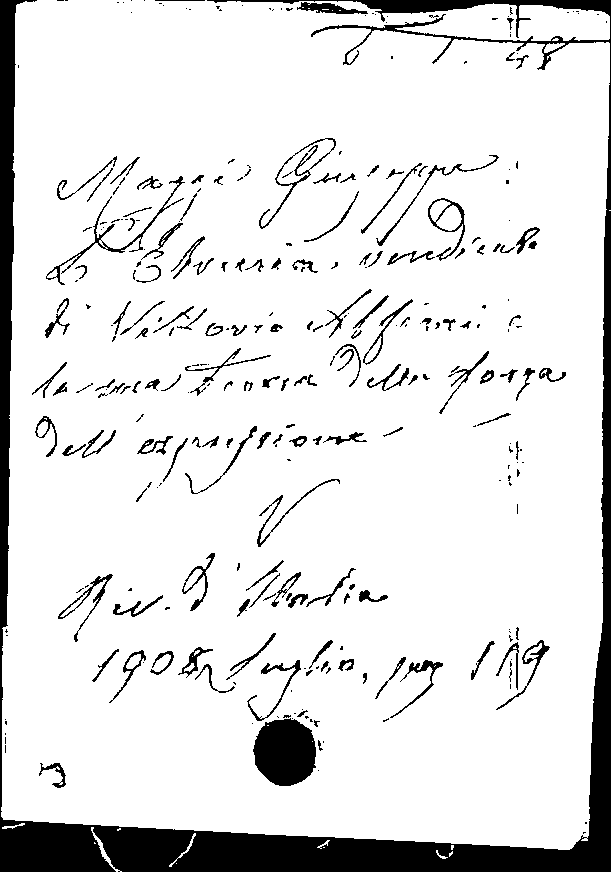 6. 1. 48
Maggi Giuseppe:
L'Etruria vendicata
di Vittorio Alfieri e
la sua teoria della forza
dell'espressione -
V
Riv. d'Italia
1908, Luglio, pag 119